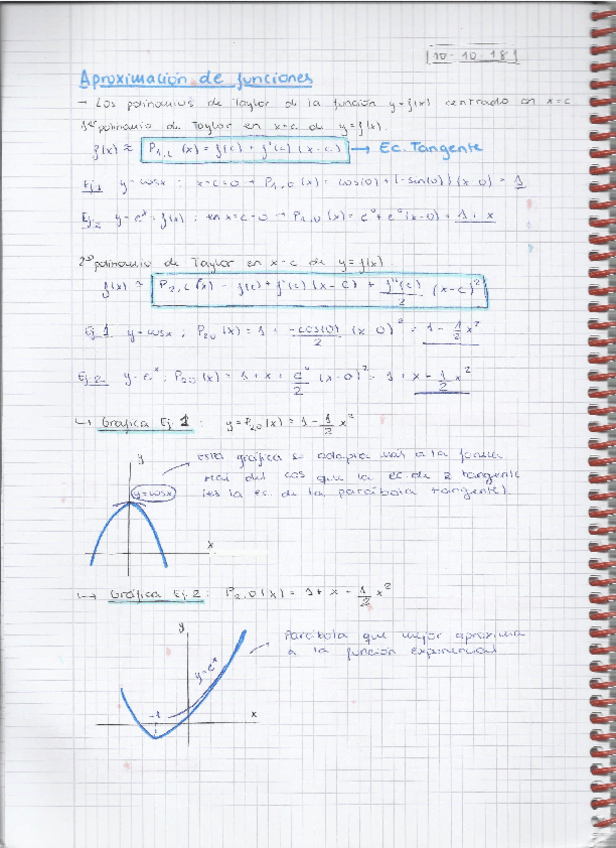 10-10-18
Aproximación de funciones
→ Los polinomios de Taylor de la función y=f(x) centrado en x=c
1er polinomio de Taylor en x=c de y=f(x).
f(x) ≈ P1,c (x) = f(c) + f'(c) (x-c) → Ec. Tangente
Ej 1 y=cosx ; x=c=0 → P1,0 (x) = cos(0) + (-sin(0)) (x-0) = 1
Ej 2 y=e^x = f(x) ; en x=c=0 → P1,0 (x) = e^0 + e^0 (x-0) = 1 + x
2º polinomio de Taylor en x=c de y=f(x)
f(x) ≈ P2,c (x) = f(c) + f'(c) (x-c) + f''(c)/2 (x-c)^2
Ej 1 y=cosx ; P2,0 (x) = 1 + -cos(0)/2 (x-0)^2 = 1 - 1/2 x^2
Ej 2 y=e^x ; P2,0 (x) = 1 + x + e^0/2 (x-0)^2 = 1 + x - 1/2 x^2
↳ Gráfica Ej 1 : y = P2,0 (x) = 1 - 1/2 x^2
esta gráfica se adapta más a la forma
real del cos que la ec. de tangente
(es la ec. de la parábola tangente)
y
y=cosx
x
↳ Gráfica Ej 2 : P2,0 (x) = 1 + x - 1/2 x^2
Parábola que mejor aproxima
a la función exponencial
y
y=e^x
-1
x